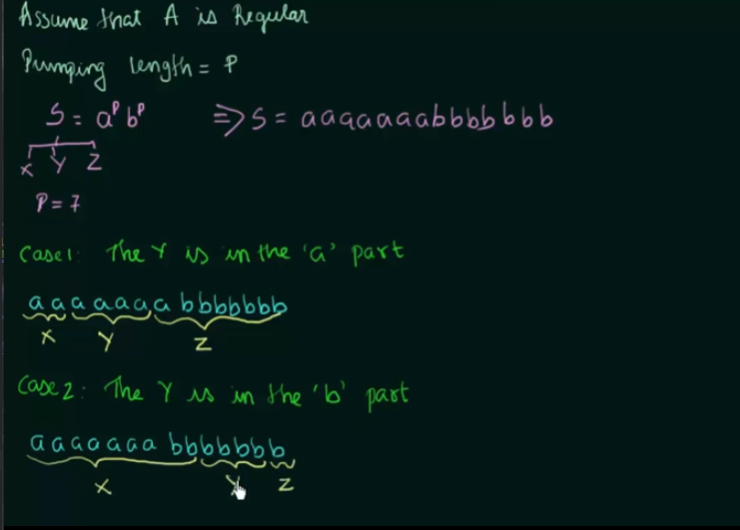 Assume that A is Regular
Pumping length = P
S = a^p b^p ⇒ S = aaaaaaabbbbbbb
X Y Z
P = 7
Case 1: The Y is in the 'a' part
aaaaaaabbbbbbb
X Y Z
Case 2: The Y is in the 'b' part
aaaaaaabbbbbbb
X Y Z